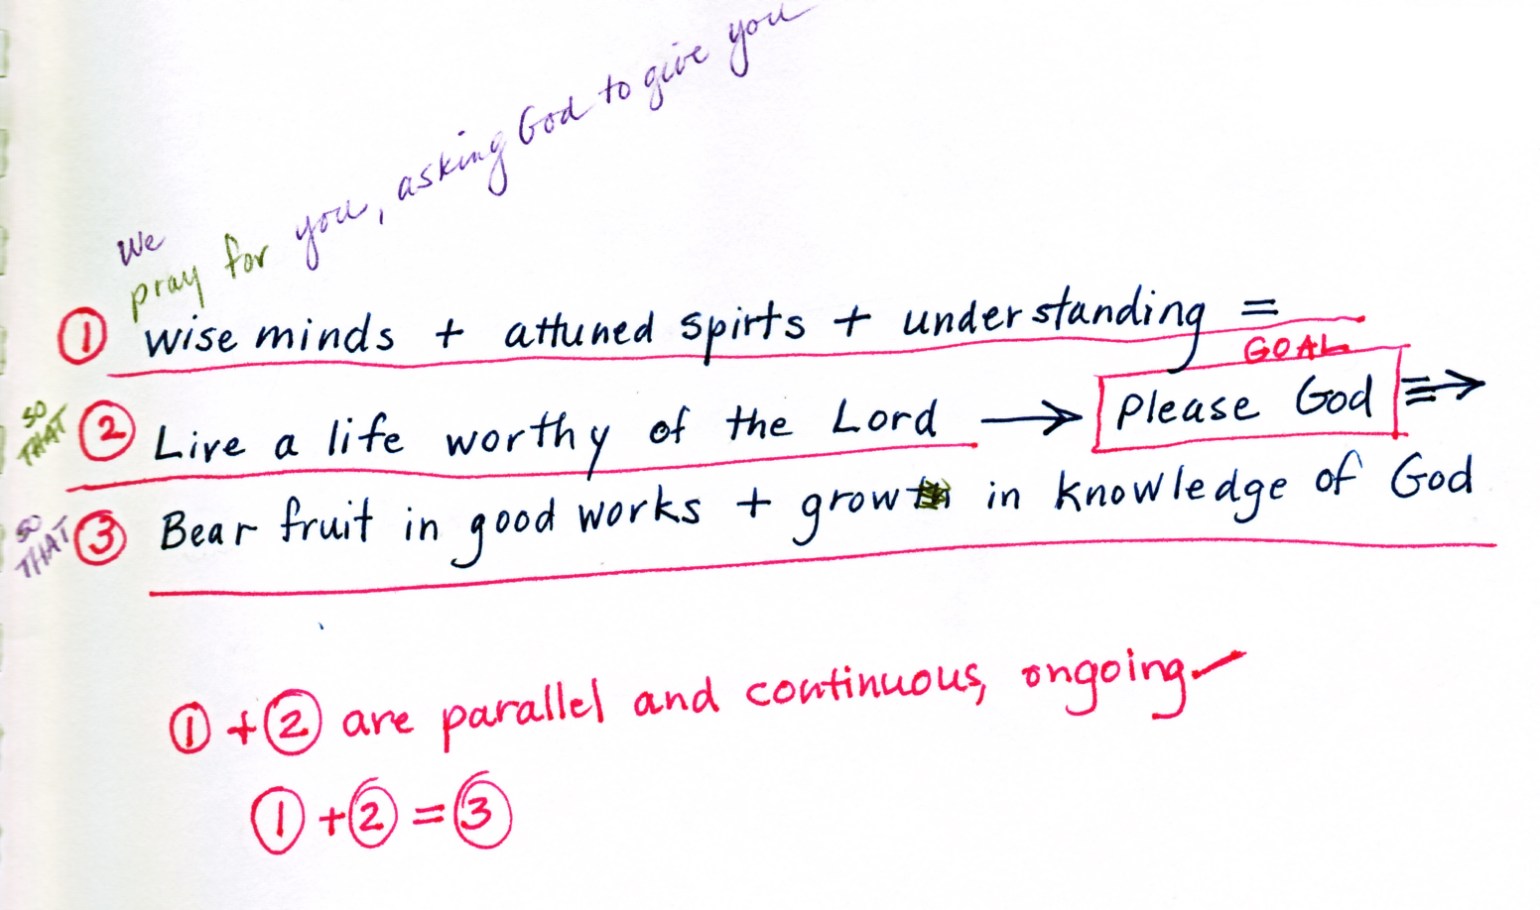 We
pray for you, asking God to give you
① wise minds + attuned spirts + understanding =
GOAL
SO THAT ② Live a life worthy of the Lord → Please God ⇒
SO THAT ③ Bear fruit in good works + grow in knowledge of God
① + ② are parallel and continuous, ongoing
① + ② = ③